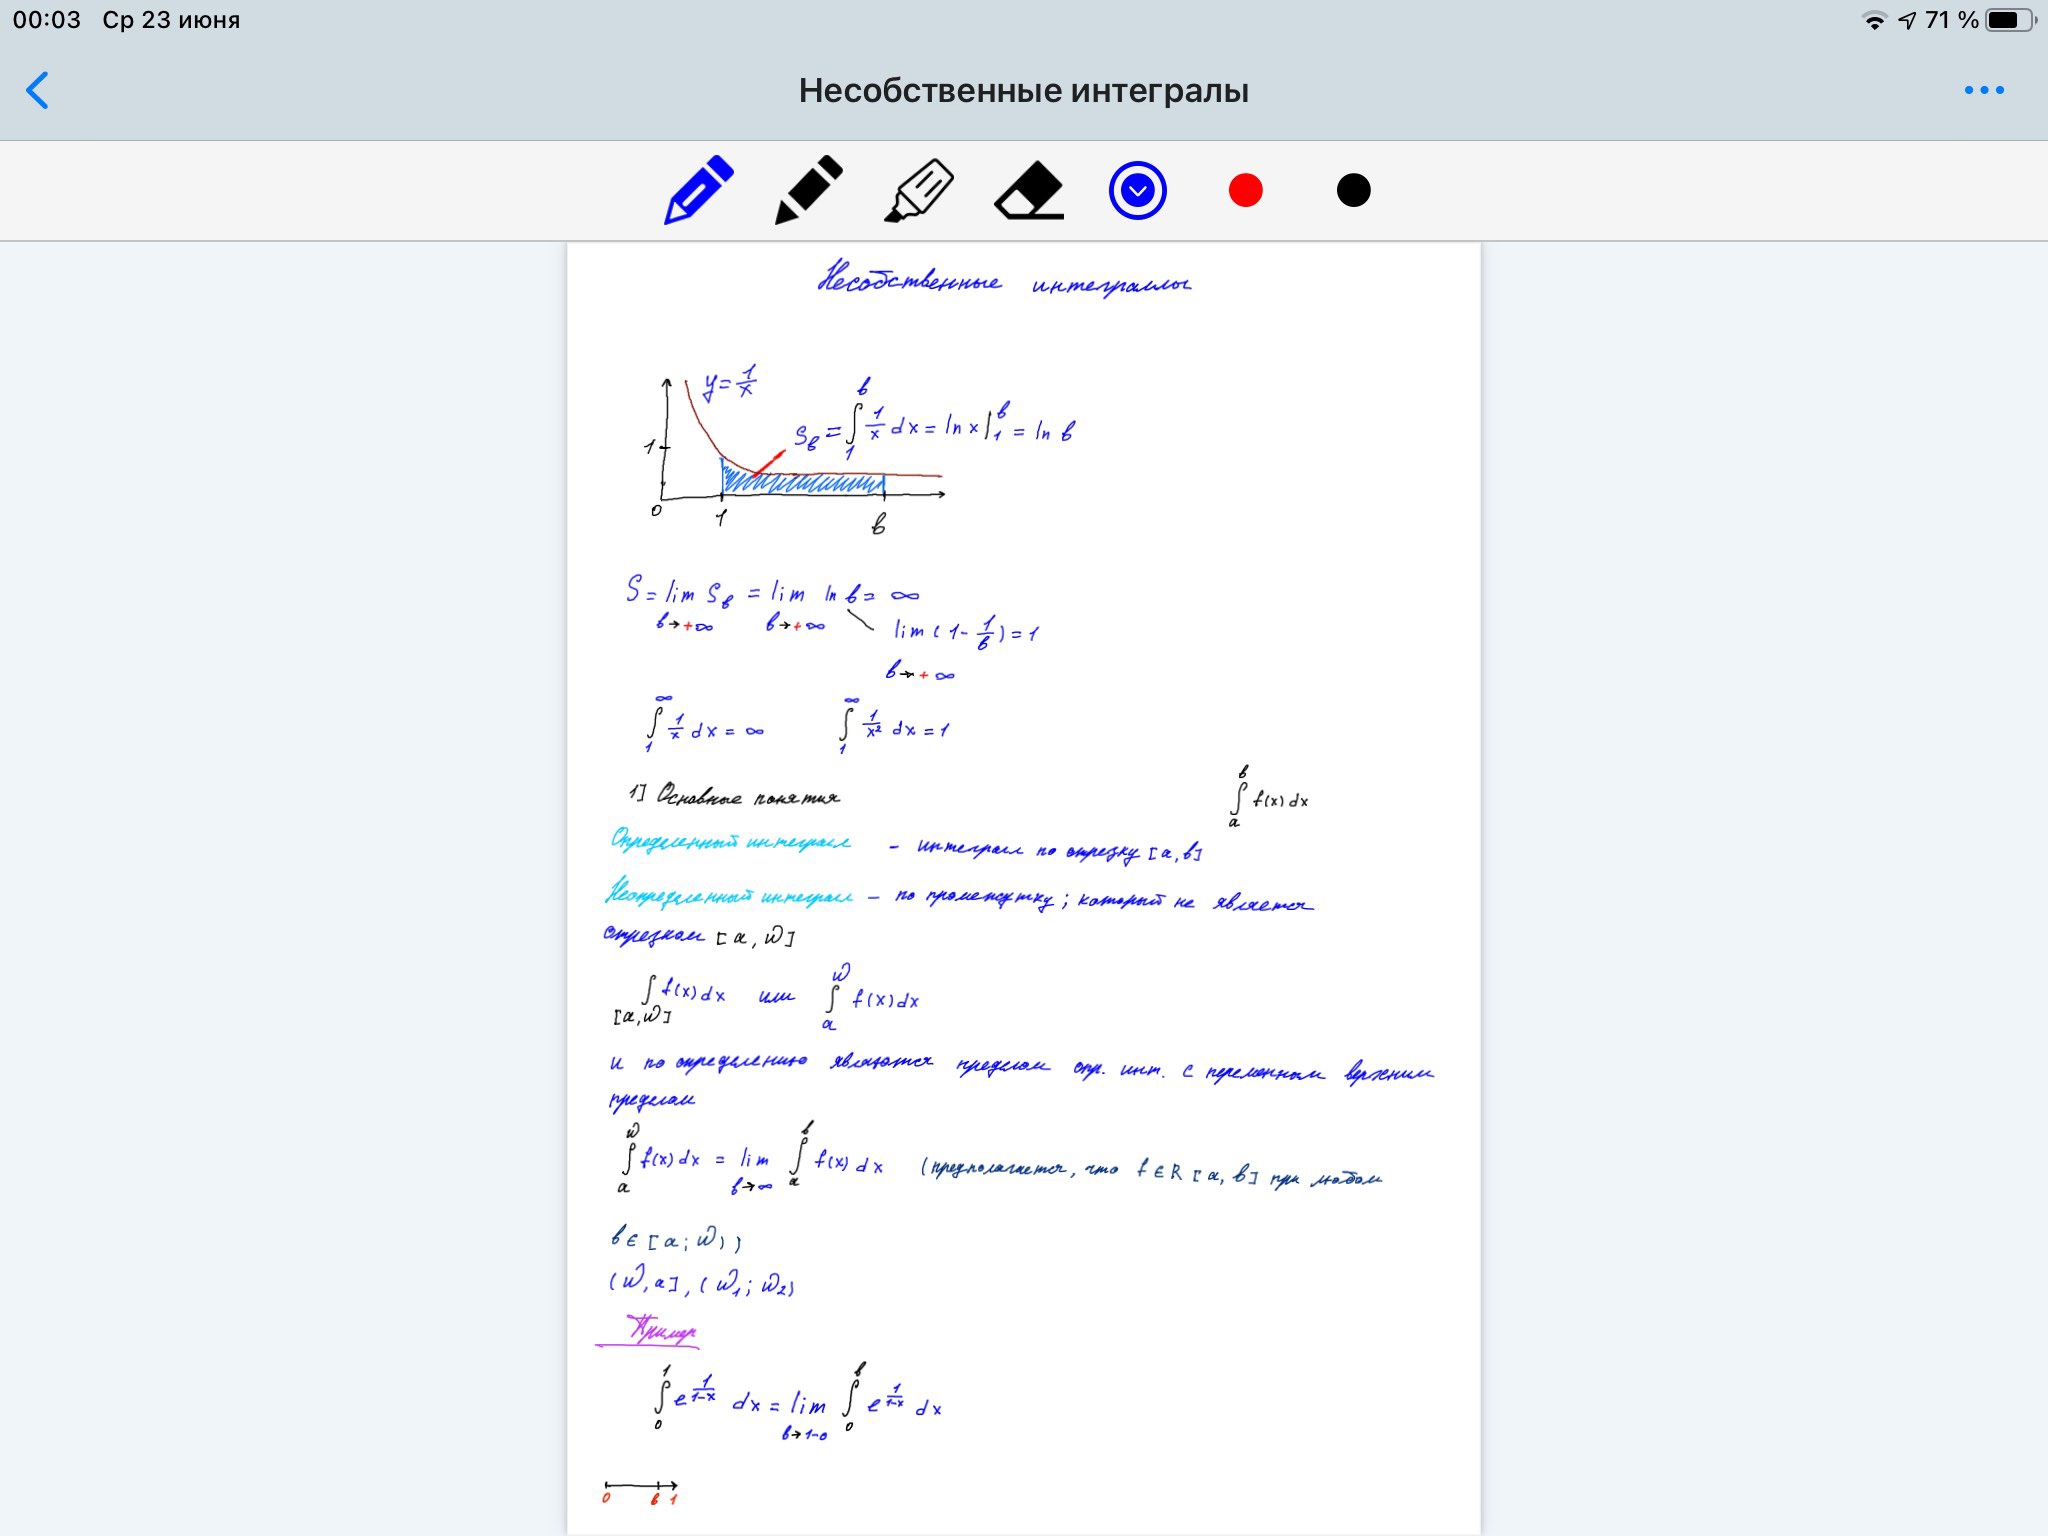 00:03 Ср 23 июня
71 %
Несобственные интегралы
Несобственные интегралы
y = 1/x
S_b = ∫_1^b 1/x dx = ln x |_1^b = ln b
1
0 1 b
S = lim S_b = lim ln b = ∞
b→+∞ b→+∞
lim (1 - 1/b) = 1
b→+∞
∫_1^∞ 1/x dx = ∞ ∫_1^∞ 1/x² dx = 1
1] Основные понятия ∫_a^b f(x) dx
Определенный интеграл - интеграл по отрезку [a, b]
Неопределенный интеграл – по промежутку; который не является
отрезком [a, ω]
∫_[a,ω] f(x) dx или ∫_a^ω f(x) dx
и по определению являются пределом опр. инт. с переменным верхним
пределом
∫_a^ω f(x) dx = lim_{b→∞} ∫_a^b f(x) dx (предполагается, что f ∈ R [a, b] при любом
b ∈ [a; ω))
(ω, a], (ω_1; ω_2)
Пример
∫_0^1 e^{1/(1-x)} dx = lim_{b→1-0} ∫_0^b e^{1/(1-x)} dx
0 b 1